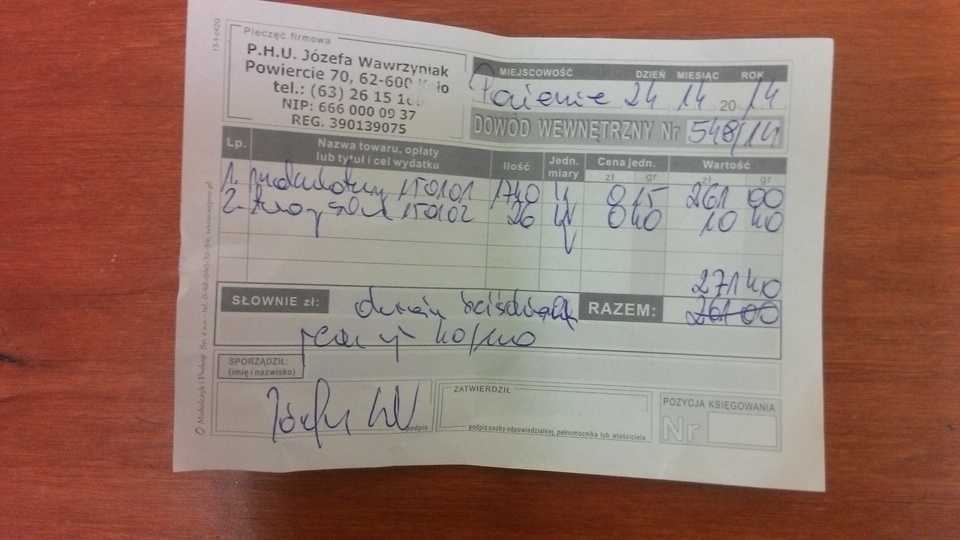 Pieczęć firmowa
P.H.U. Józefa Wawrzyniak
Powiercie 70, 62-600 Koło
tel.: (63) 26 15
NIP: 666 000 09 37
REG. 390139075
MIEJSCOWOŚĆ DZIEŃ MIESIĄC ROK
24 14 20 14
DOWÓD WEWNĘTRZNY Nr 548/14
Lp. Nazwa towaru, opłaty lub tytuł i cel wydatku Ilość Jedn. miary Cena jedn. zł gr Wartość zł gr
1. 150101 1740 0 15 261 00
2. 150102 26 0 40 10 40
271 40
SŁOWNIE zł: RAZEM: 261 00
40/100
SPORZĄDZIŁ:
(imię i nazwisko)
podpis
ZATWIERDZIŁ
podpis osoby odpowiedzialnej, pełnomocnika lub właściciela
POZYCJA KSIĘGOWANIA
Nr